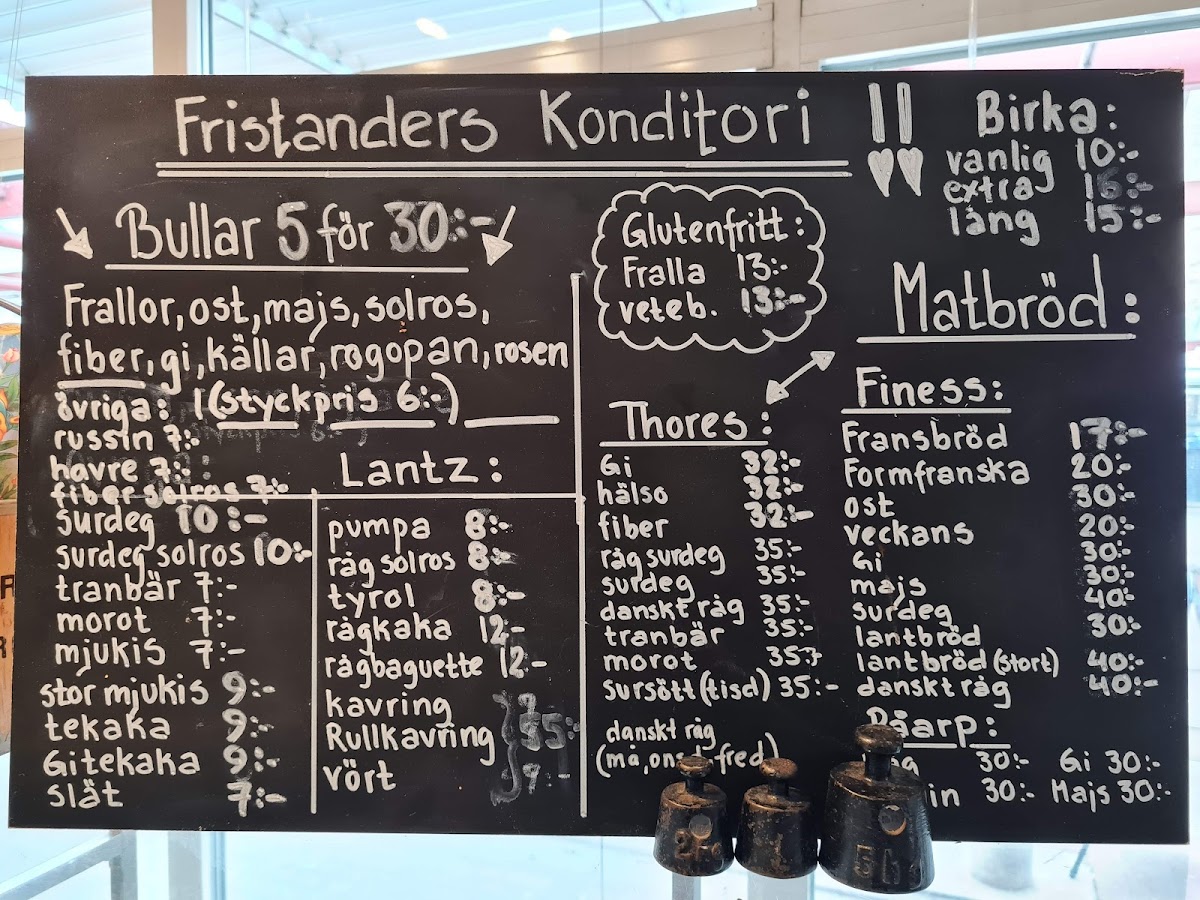 Fristanders Konditori
Bullar 5 för 30:-
Frallor, ost, majs, solros,
fiber, gi, källar, rogopan, rosen
övriga: (styckpris 6:-)
russin 7:-
havre 7:-
fiber solros 7:-
surdeg 10:-
surdeg solros 10:-
tranbär 7:-
morot 7:-
mjukis 7:-
stor mjukis 9:-
tekaka 9:-
Gitekaka 9:-
slät 7:-
Lantz:
pumpa 8:-
råg solros 8:-
tyrol 8:-
rågkaka 12:-
rågbaguette 12:-
kavring
Rullkavring 35:-
vört
Glutenfritt:
Fralla 13:-
veteb. 13:-
Thores:
Gi 32:-
hälso 32:-
fiber 32:-
råg surdeg 35:-
surdeg 35:-
danskt råg 35:-
tranbär 35:-
morot 35:-
sursött (tisd) 35:-
danskt råg
(må, ons fred)
Birka:
vanlig 10:-
extra 16:-
lång 15:-
Matbröd:
Finess:
Fransbröd 17:-
Formfranska 20:-
ost 30:-
veckans 20:-
Gi 30:-
majs 30:-
surdeg 40:-
lantbröd 30:-
lantbröd (stort) 40:-
danskt råg 40:-
Påarp:
30:- Gi 30:-
30:- Majs 30:-